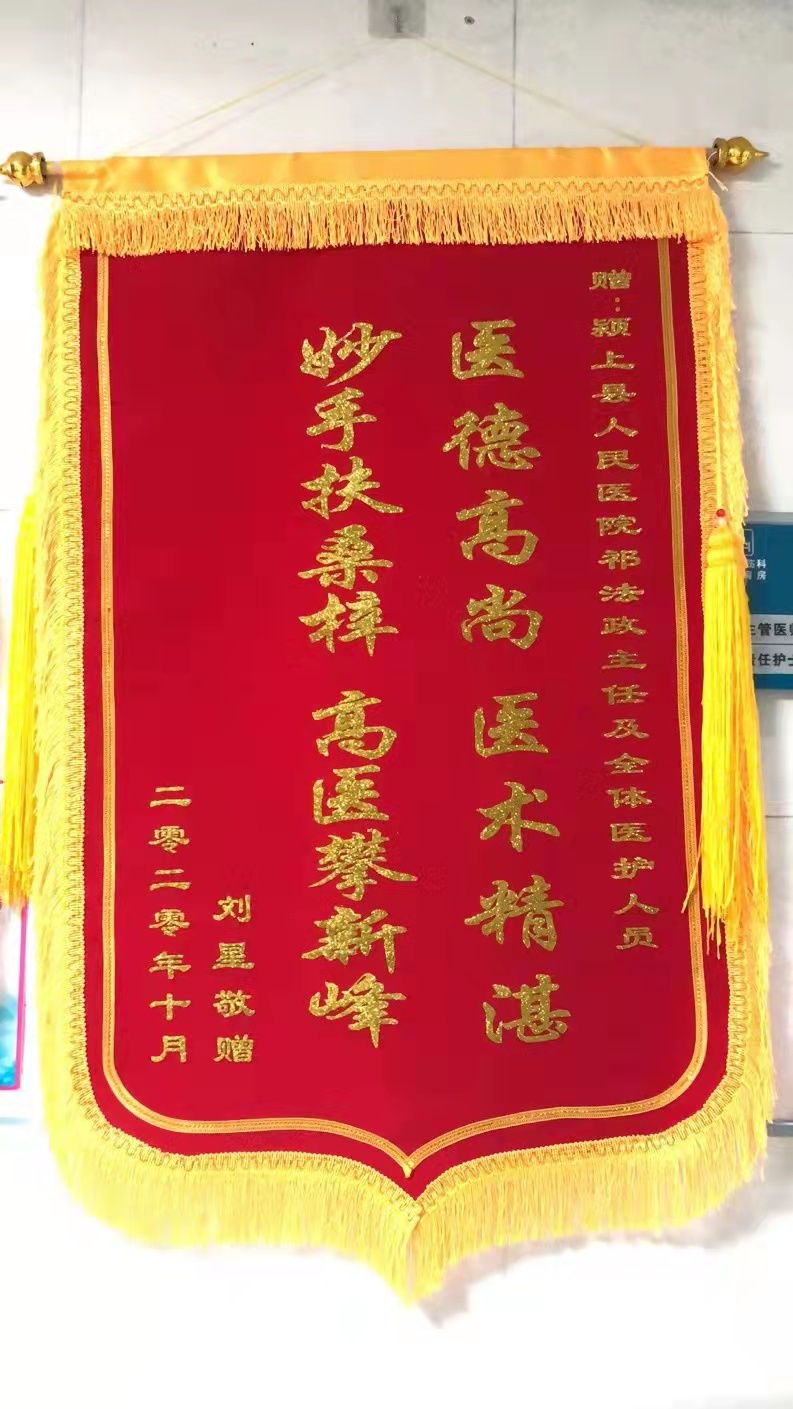 赠：颍上县人民医院祁法政主任及全体医护人员
医德高尚 医术精湛
妙手扶桑梓 高医攀新峰
刘星敬赠
二零二零年十月
主管医师
责任护士